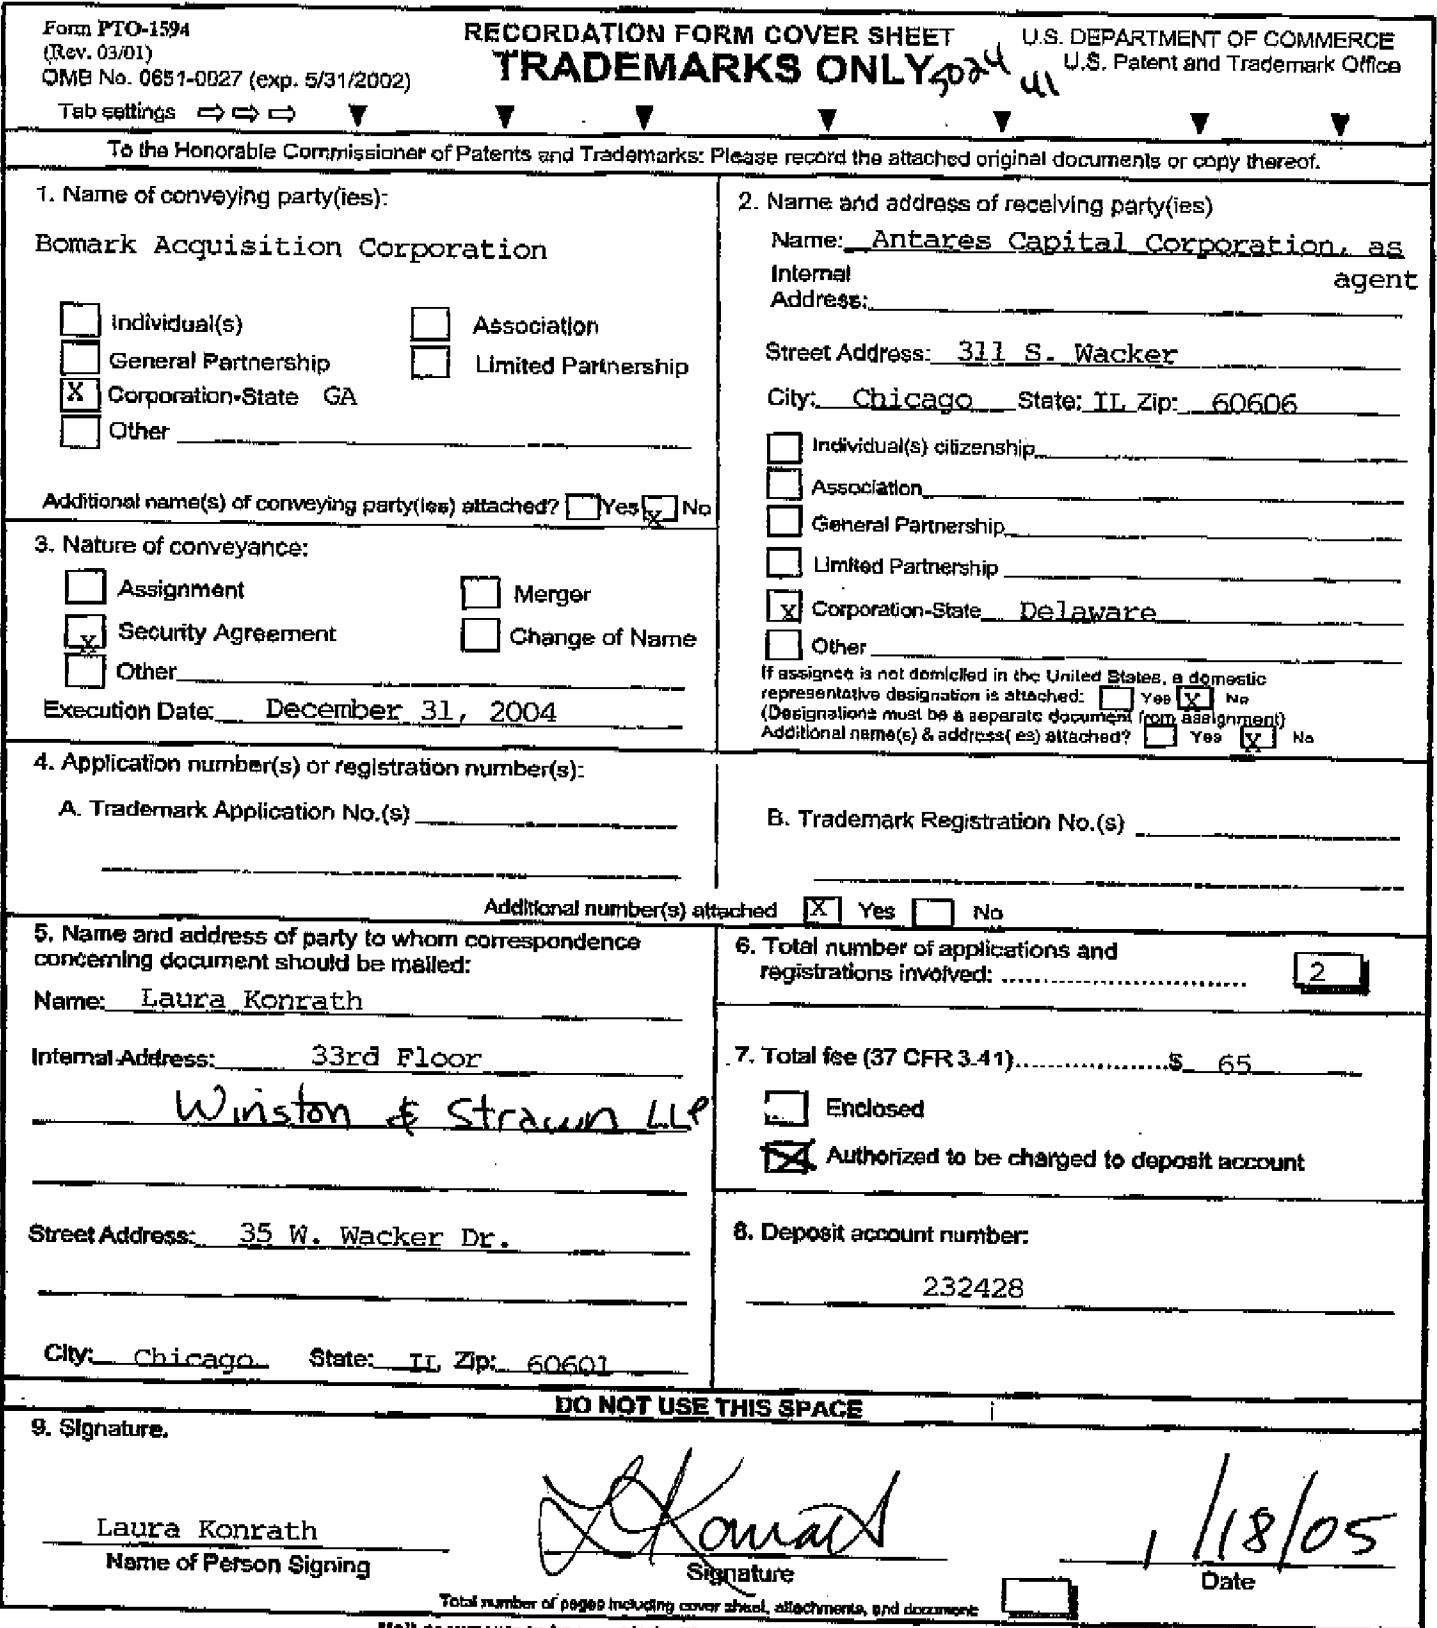 Form PTO-1594
(Rev. 03/01)
OMB No. 0651-0027 (exp. 5/31/2002)
Tab settings
RECORDATION FORM COVER SHEET
TRADEMARKS ONLY
5024
41
U.S. DEPARTMENT OF COMMERCE
U.S. Patent and Trademark Office
To the Honorable Commissioner of Patents and Trademarks: Please record the attached original documents or copy thereof.
1. Name of conveying party(ies):
Bomark Acquisition Corporation
Individual(s) Association
General Partnership Limited Partnership
X Corporation-State GA
Other
Additional name(s) of conveying party(ies) attached? Yes X No
2. Name and address of receiving party(ies)
Name: Antares Capital Corporation, as
agent
Internal
Address:
Street Address: 311 S. Wacker
City: Chicago State: IL Zip: 60606
Individual(s) citizenship
Association
General Partnership
Limited Partnership
X Corporation-State Delaware
Other
If assignee is not domiciled in the United States, a domestic
representative designation is attached: Yes X No
(Designations must be a separate document from assignment)
Additional name(s) & address( es) attached? Yes X No
3. Nature of conveyance:
Assignment Merger
X Security Agreement Change of Name
Other
Execution Date: December 31, 2004
4. Application number(s) or registration number(s):
A. Trademark Application No.(s)
B. Trademark Registration No.(s)
Additional number(s) attached X Yes No
5. Name and address of party to whom correspondence
concerning document should be mailed:
Name: Laura Konrath
Internal Address: 33rd Floor
Winston & Strawn LLP
Street Address: 35 W. Wacker Dr.
City: Chicago State: IL Zip: 60601
6. Total number of applications and
registrations involved: 2
7. Total fee (37 CFR 3.41)..................$ 65
Enclosed
X Authorized to be charged to deposit account
8. Deposit account number:
232428
DO NOT USE THIS SPACE
9. Signature.
Laura Konrath
Name of Person Signing
LKonrath
Signature
1/18/05
Date
Total number of pages including cover sheet, attachments, and document: